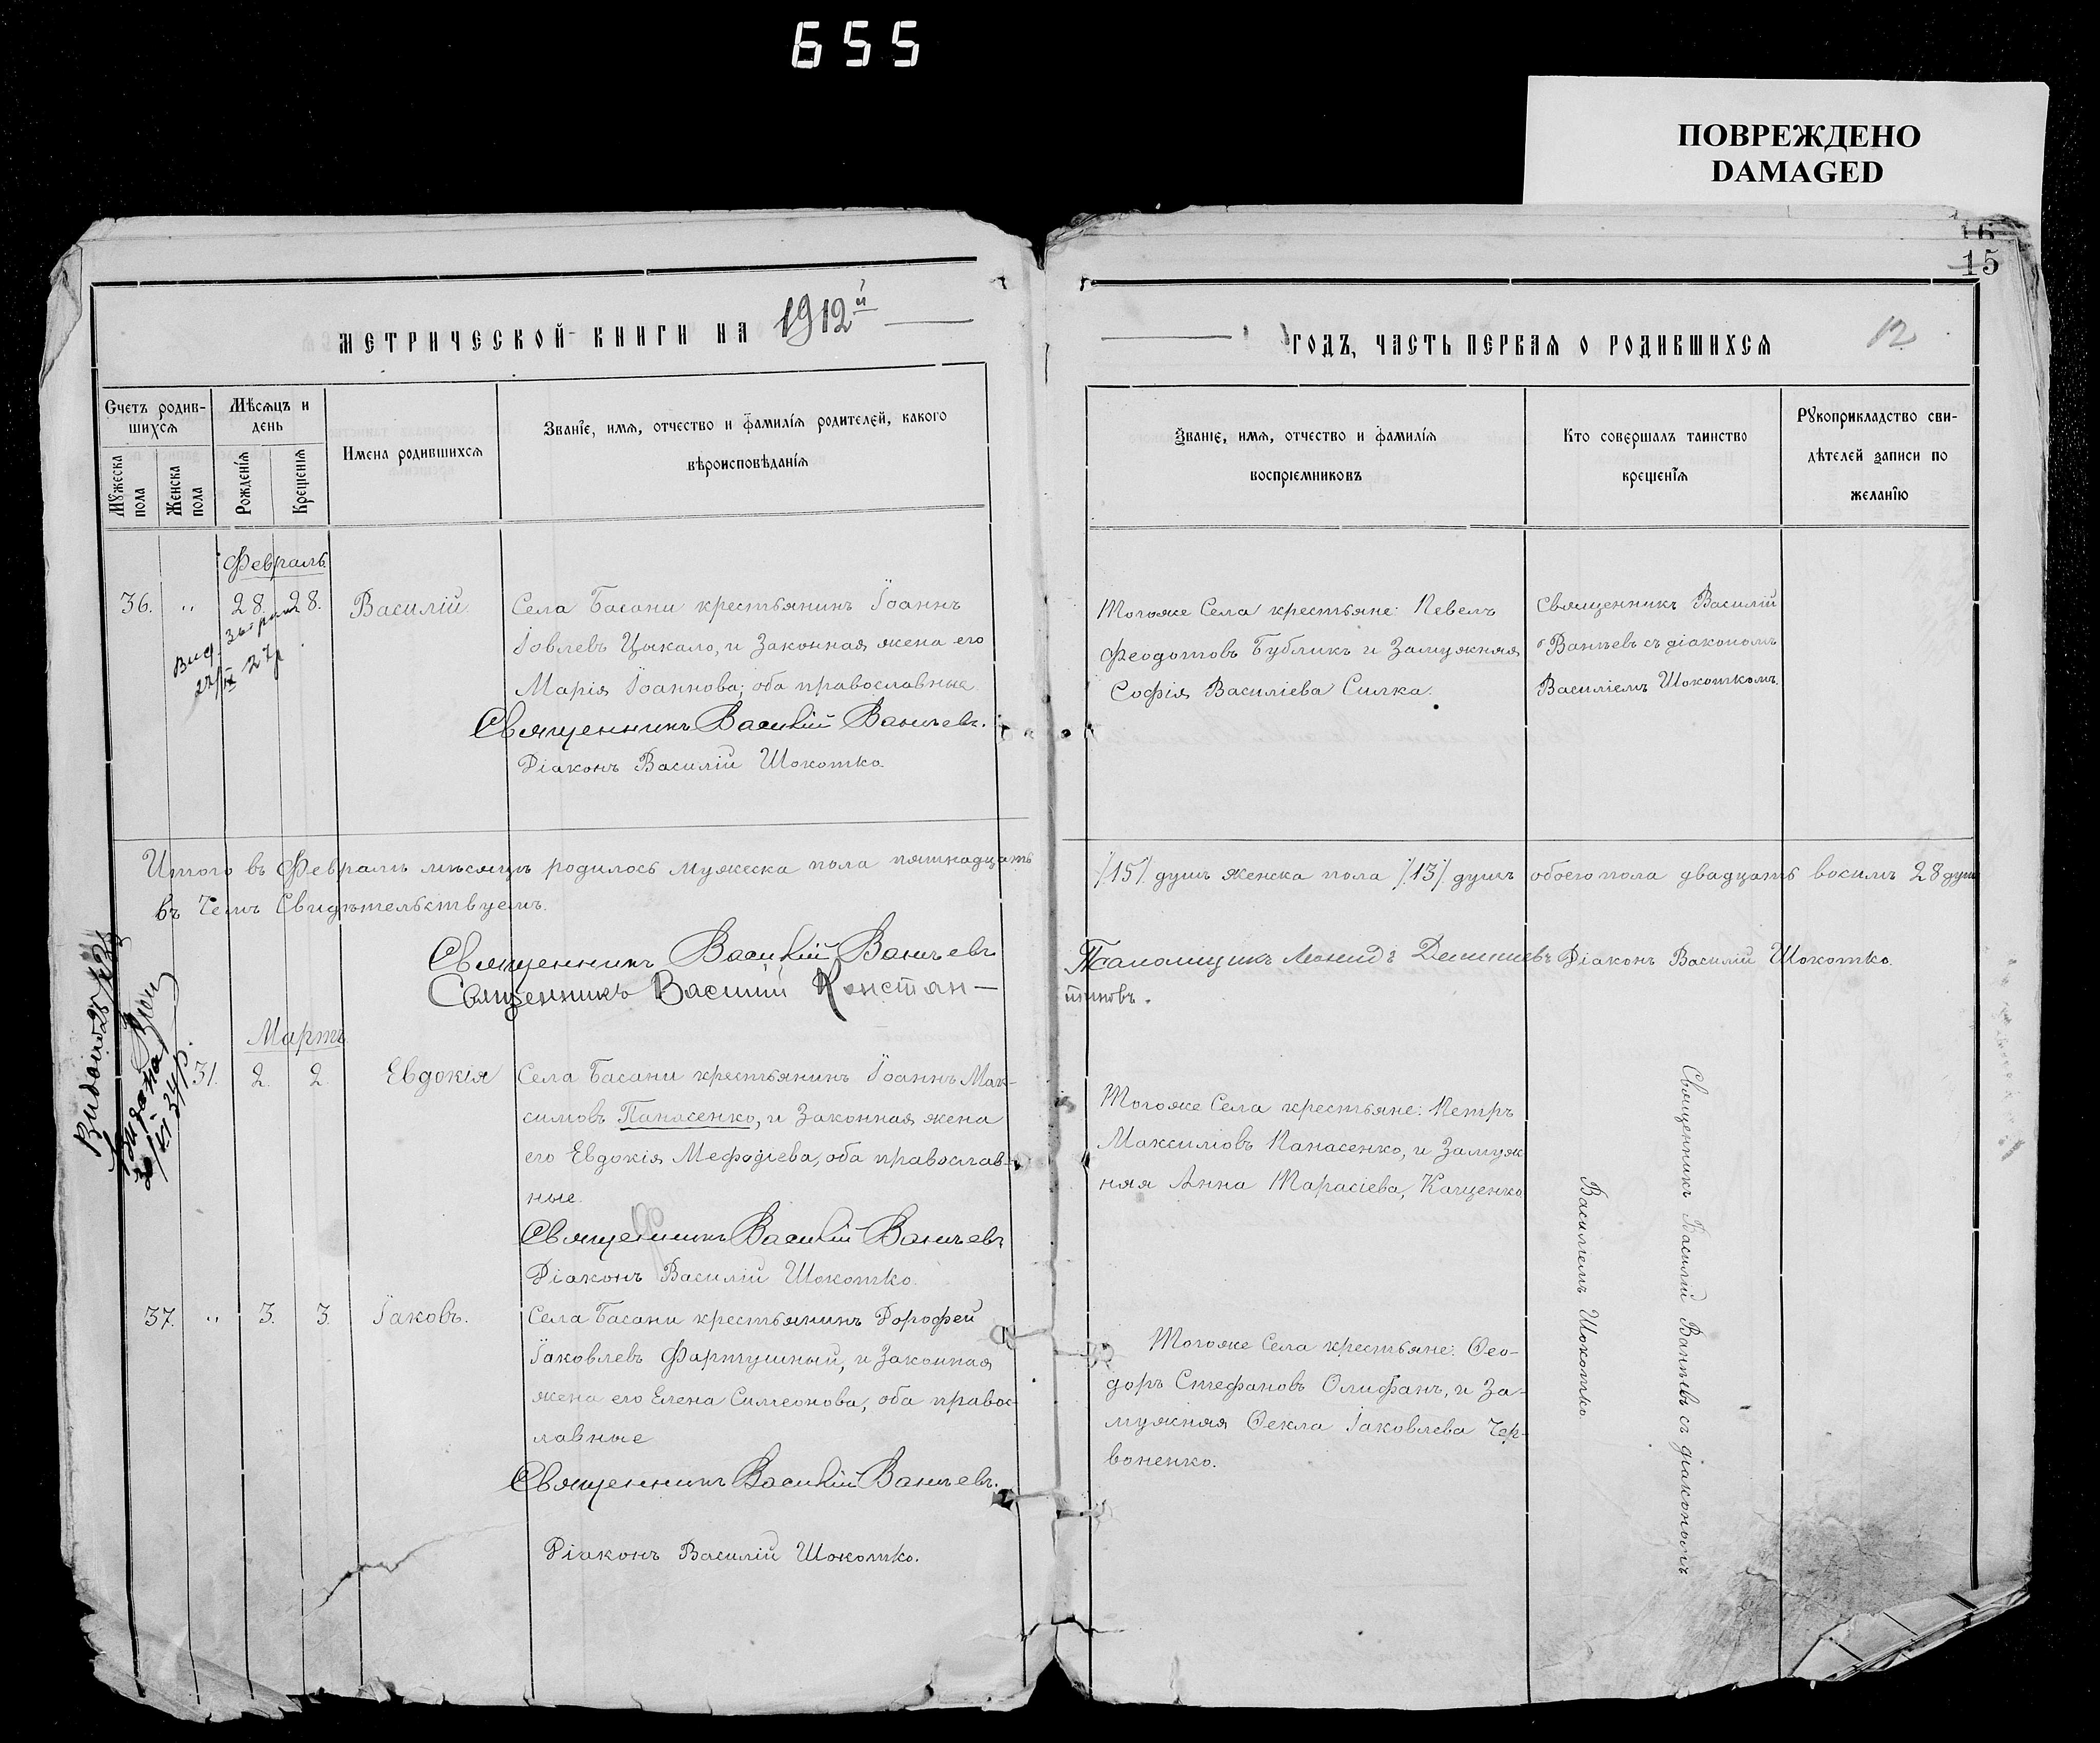 655
ПОВРЕЖДЕНО
DAMAGED
16
15
МЕТРИЧЕСКОЙ КНИГИ НА 1912й
ГОДЪ, ЧАСТЬ ПЕРВАЯ О РОДИВШИХСЯ
12
Счетъ родив-
шихся
Мѣсяцъ и
день
Мужеска
пола
Женска
пола
Рожденія
Крещенія
Имена родившихся
Званіе, имя, отчество и фамилія родителей, какого
вѣроисповѣданія
Званіе, имя, отчество и фамилія
воспріемниковъ
Кто совершалъ таинство
крещенія
Рукоприкладство сви-
дѣтелей записи по
желанію
Февраль
36. „ 28. 28. Василій.
Села Басани крестьянинъ Іоаннъ
Іовлевъ Цыкало, и Законная жена его
Марія Іоаннова; оба православные.
Священникъ Василій Ванчевъ.
Діаконъ Василій Шокотко.
Тогоже Села крестьяне: Павелъ
Феодотовъ Бубликъ и Замужняя
Софія Василіева Силка.
Священникъ Василій
Ванчевъ съ діакономъ
Василіемъ Шокоткомъ.
Итого въ Февралѣ мѣсяцѣ родилось мужеска пола пятнадцать
/15/. душъ женска пола /.13/. душъ обоего пола двадцать восимъ 28 душ
въ Чемъ Свидѣтельствуемъ.
Священникъ Василій Ванчевъ
Псаломщикъ Леонидъ Діаконъ Василій Шокотко.
Священникъ Василій Констан-
тиновъ.
Мартъ
31. 2. 2. Евдокія
Села Басани крестьянинъ Іоаннъ Мак-
симовъ Панасенко, и Законная жена
его Евдокія Мефодіева, оба православ-
ные.
Священникъ Василій Ванчевъ
Діаконъ Василій Шокотко.
Тогоже Села крестьяне: Петръ
Максимовъ Панасенко, и Замуж
няя Анна Тарасіева, Кащенко
37. „ 3. 3. Іаковъ.
Села Басани крестьянинъ Дорофей
Іаковлевъ Фартушный, и Законная
жена его Елена Симеонова, оба правос-
лавные
Священникъ Василій Ванчевъ.
Діаконъ Василій Шокотко.
Тогоже Села крестьяне: Ѳео-
доръ Стефановъ Олифанъ, и За-
мужняя Ѳекла Іаковлева Чер-
воненко.
Священникъ Василій Ванчевъ съ діакономъ
Василіемъ Шокотко